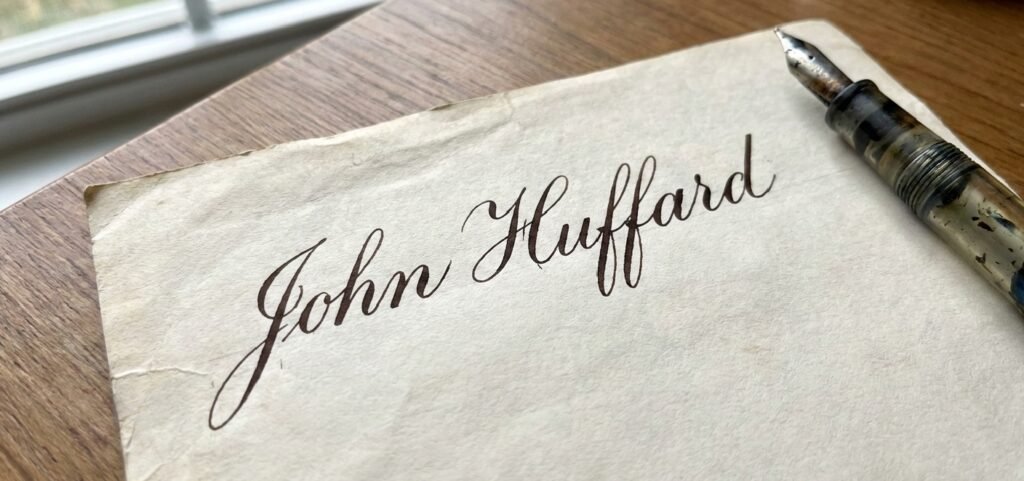 John Huffard